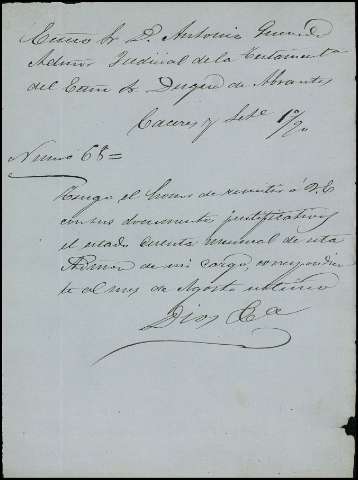 Excmo Sr D. Antonio
Admor Judicial de la Testamenta
del Excmo Sr Duque de Abrantes
Caceres y Sete 1º/70
Numo 68=
Tengo el honor de remitir á V.E
con sus documentos justificativos
el estado cuenta mensual de esta
Admon de mi cargo, correspondien
te al mes de Agosto ultimo
Dios &a